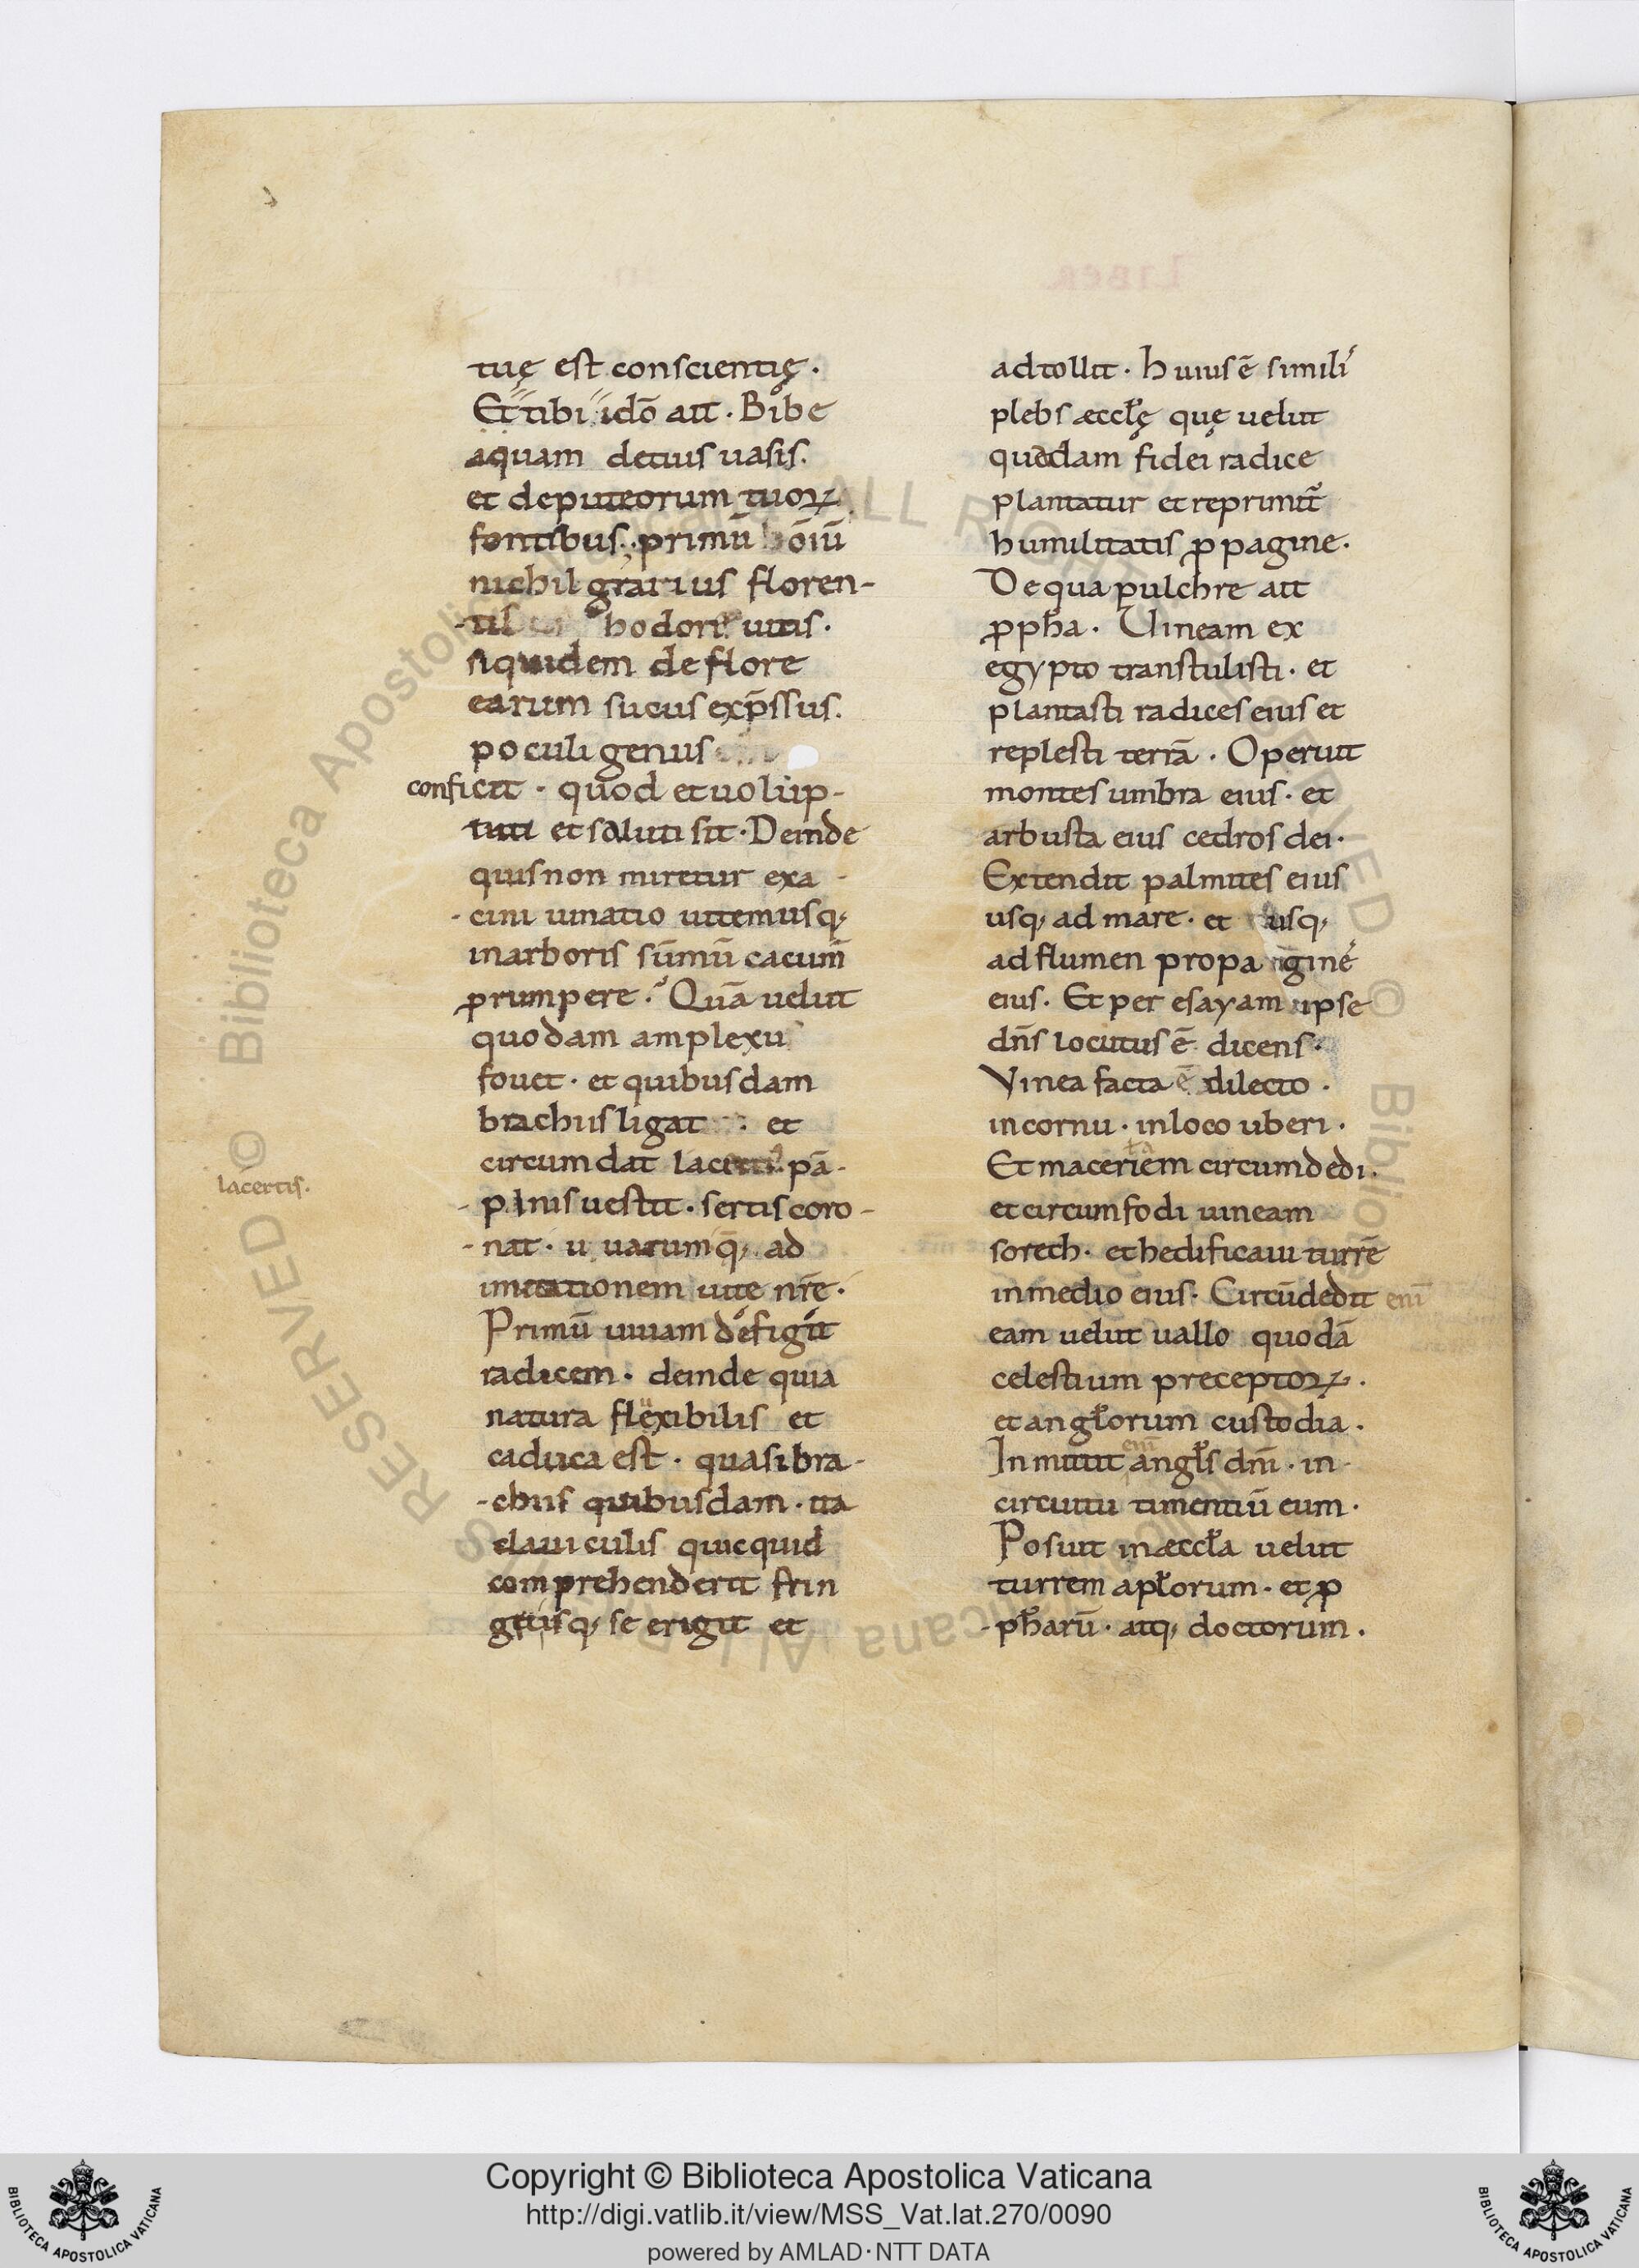 tuę est conscientię.
Et tibi idō ait. Bibe
aquam detuis uasis.
et deputeorum tuoꝝ
fontibus. primū ōiū
nichil gratius floren-
-tis hodore uitis.
siquidem de flore
earum sucus exp̄ssus.
poculi genus
conficit. quod et uolup-
tati et saluti sit. Deinde
quis non miretur exa
-cini uinatio uitemusq;
inarboris sūmū cacum̄
ꝓrumpere. Quā uelut
quodam amplexu
fouet. et quibusdam
brachiis ligat et
circumdat pā-
lacertis.
-pinis uestit. sertis coro-
-nat. uarumq; ad
imitationem uite nr̄e.
Primū uiuam defigit
radicem. deinde quia
natura flexibilis et
caduca est. quasi bra-
-chiis quibusdam. ita
clauiculis quicquid
comprehenderit strin
gitisq; se erigit et
adtollit. Huius ē simili
plebs æccl̄ę quę uelut
quadam fidei radice
plantatur et reprimit᷑
humilitatis ꝓpagine.
De qua pulchre ait
ꝓph̄a. Uineam ex
egypto transtulisti. et
plantasti radices eius et
replesti terrā. Operuit
montes umbra eius. et
arbusta eius cedros dei.
Extendit palmites eius
usq; ad mare. et usq;
ad flumen propagine
eius. Et per esayam ipse
dn̄s locutus ē dicens.
Vinea facta ē dilecto.
incornu. inloco uberi.
Et maceriem circumdedi.
et circumfodi uineam
sorech. et hedificaui turrē
inmedio eius. Circūdedit eni̅
eam uelut uallo quodā
celestium preceptoꝝ.
et angl̄orum custodia.
eni̅
Inmittit angl̄s dn̄i. in
circuitu timentiū eum.
Posuit inæccl̄a uelut
turrem apl̄orum. et ꝓ
-ph̄arū. atq; doctorum.
Copyright © Biblioteca Apostolica Vaticana
http://digi.vatlib.it/view/MSS_Vat.lat.270/0090
powered by AMLAD·NTT DATA